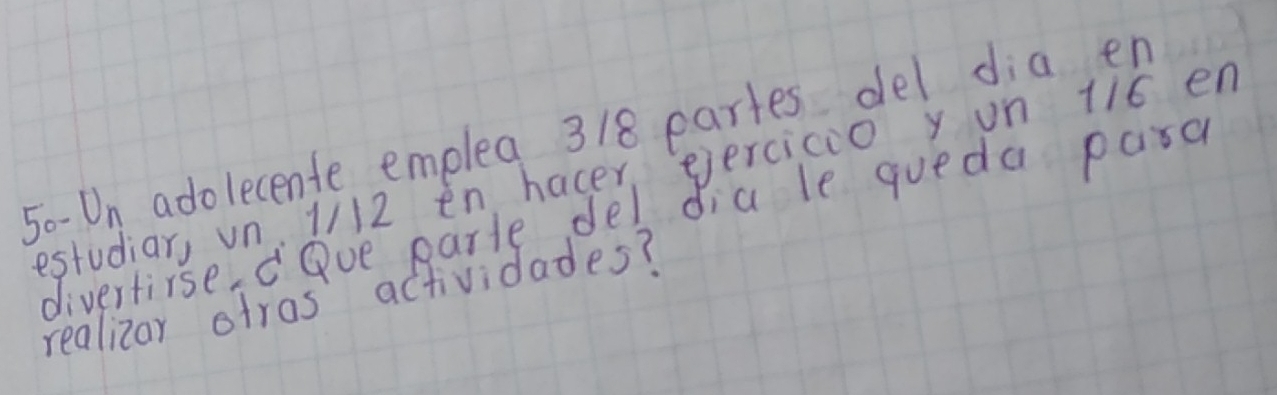 5.- Un adolecente emplea 3/8 partes del dia en
estudiar, un 1/12 en hacer ejercicio y un 1/6 en
divertirse. ¿Que parte del dia le queda para
realizar otras actividades?